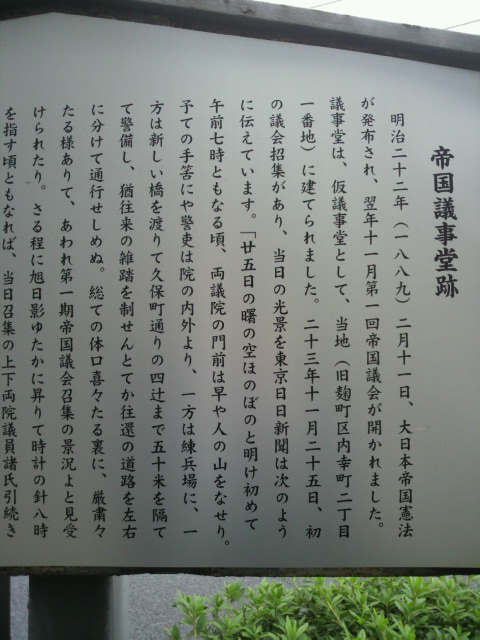 帝国議事堂跡
明治二十二年（一八八九）二月十一日、大日本帝国憲法
が発布され、翌年十一月第一回帝国議会が開かれました。
議事堂は、仮議事堂として、当地（旧麹町区内幸町二丁目
一番地）に建てられました。二十三年十一月二十五日、初
の議会招集があり、当日の光景を東京日日新聞は次のよう
に伝えています。「廿五日の曙の空ほのぼのと明け初めて
午前七時ともなる頃、両議院の門前は早や人の山をなせり。
予ての手筈にや警吏は院の内外より、一方は練兵場に、一
方は新しい橋を渡りて久保町通りの四辻まで五十米を隔て
て警備し、猶往来の雑踏を制せんとてか往還の道路を左右
に分けて通行せしめぬ。総ての体口喜々たる裏に、厳粛々
たる様ありて、あわれ第一期帝国議会召集の景況よと見受
けられたり。さる程に旭日影ゆたかに昇りて時計の針八時
を指す頃ともなれば、当日召集の上下両院議員諸氏引続き